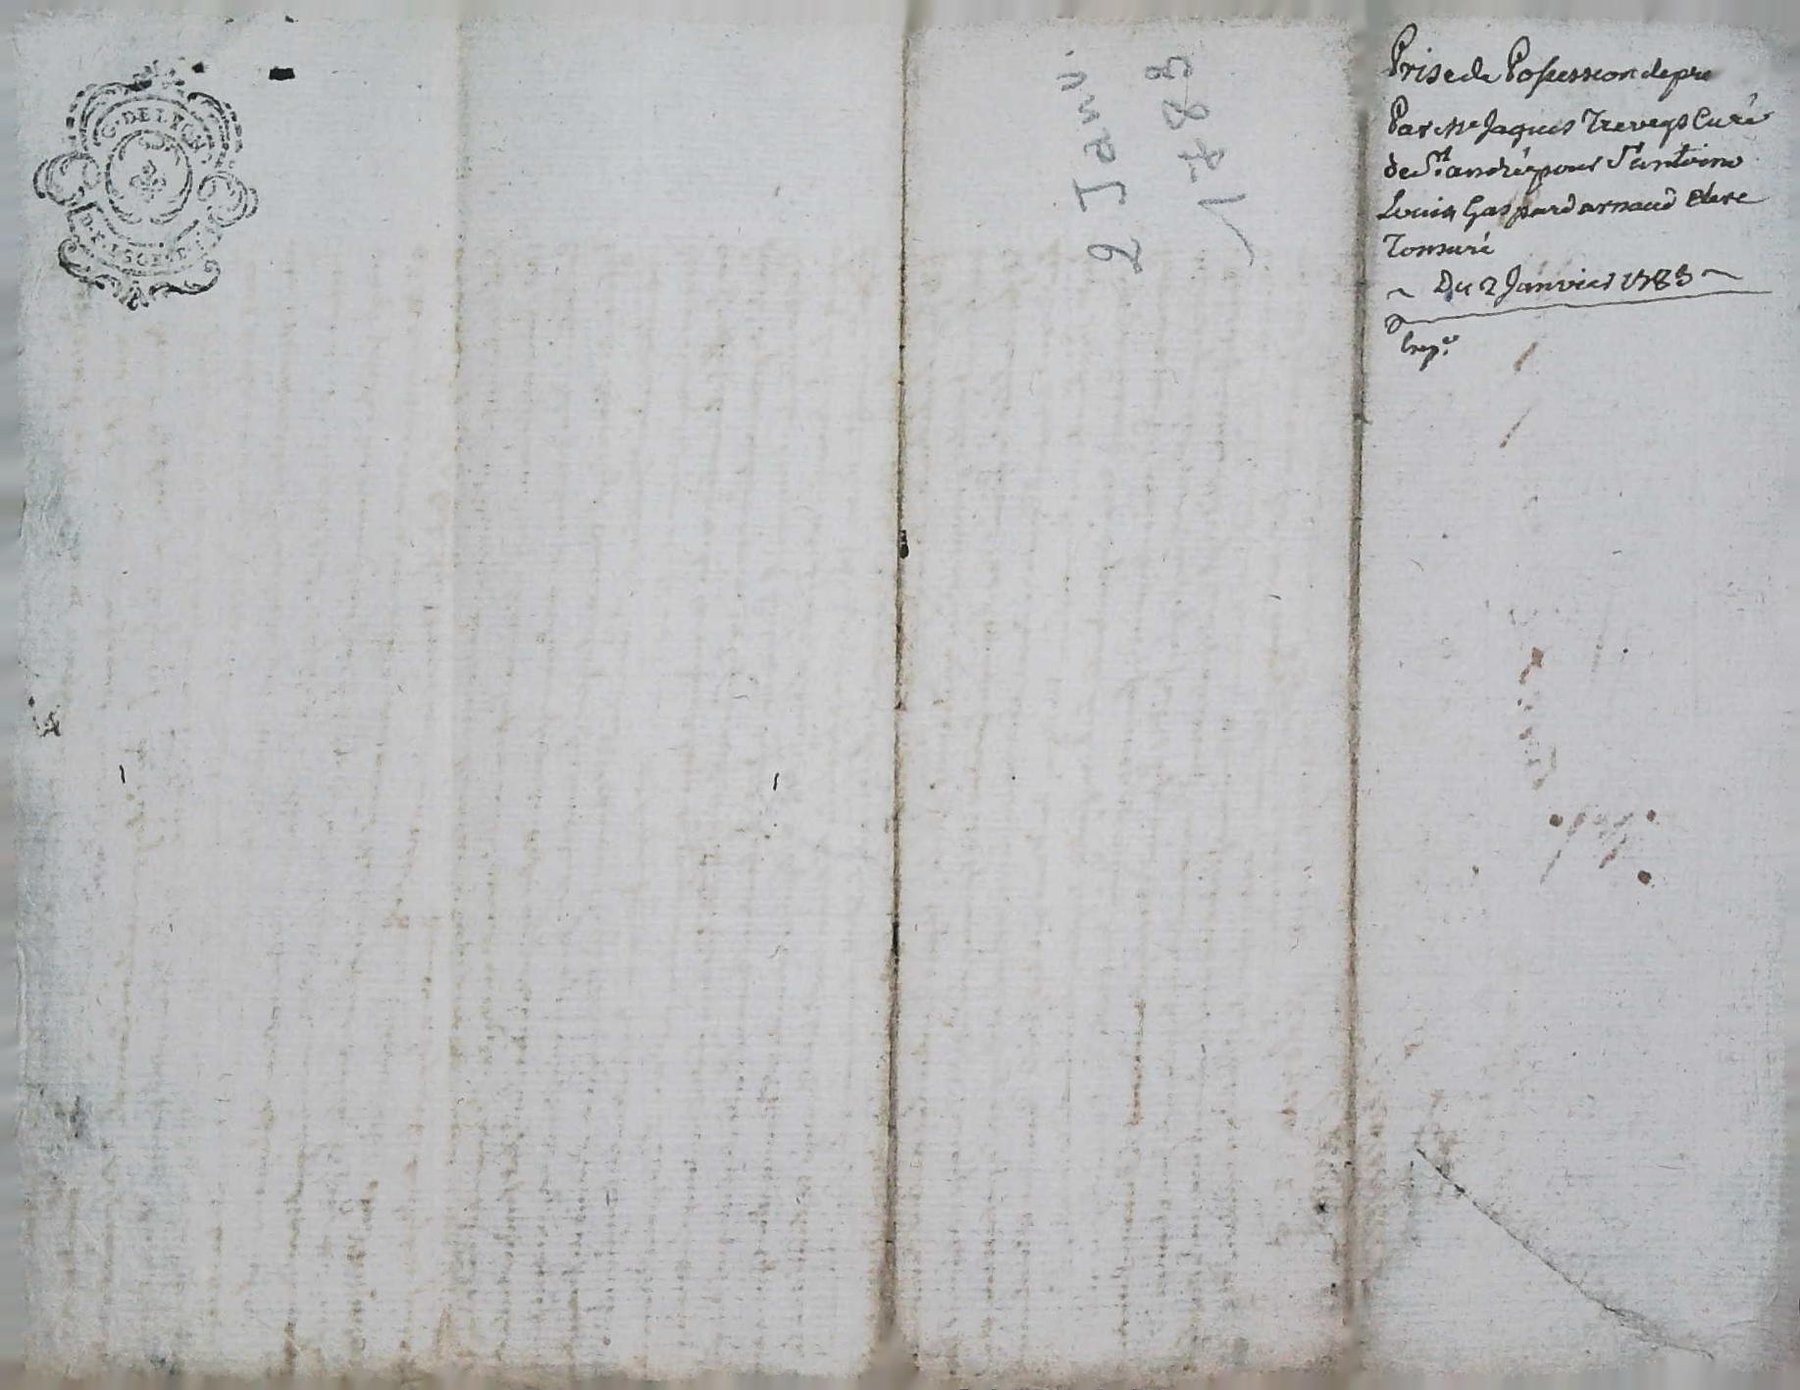 G. DE LYON
2 Janv.
1783
Prise de Possession de pré
Par Me Jaques Treveys Curé
de St. andré pour Sr antoine
Louis Gaspard arnaud Clerc
Tonsuré
~ Du 2 Janvier 1783 ~